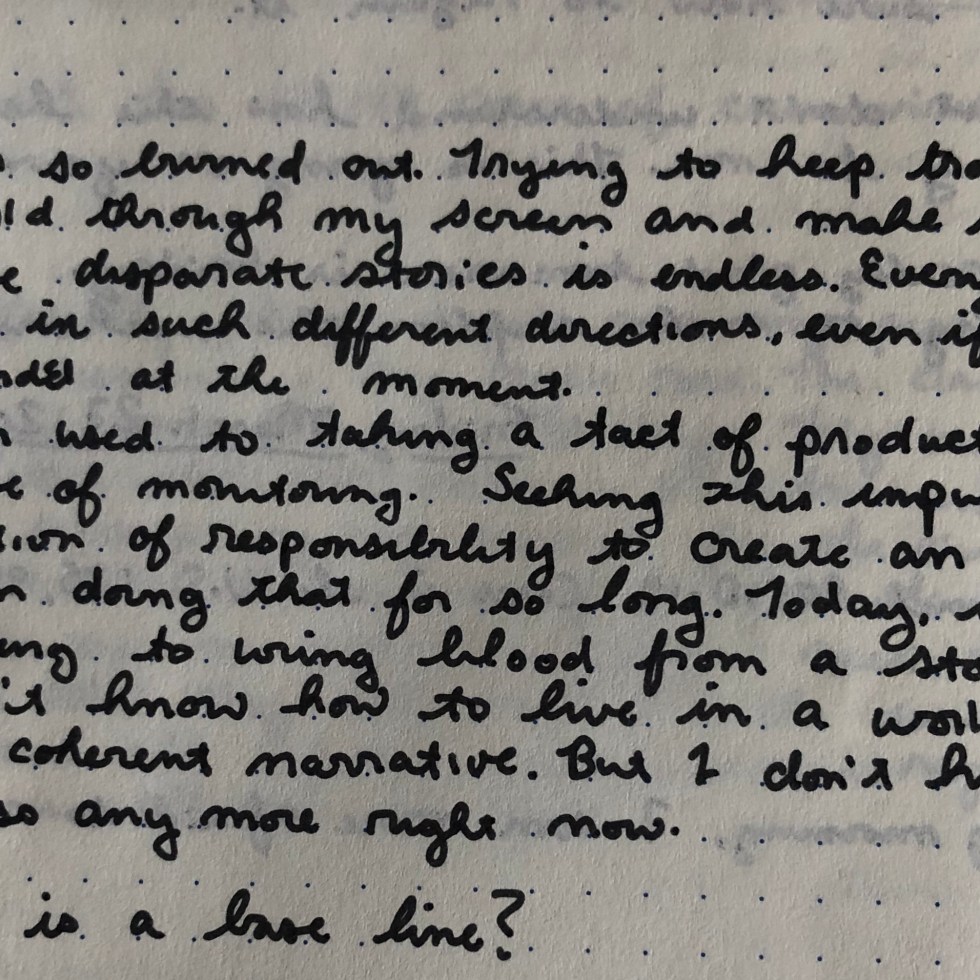 so burned out. Trying to keep
through my screen and make
disparate stories is endless. Even
in such different directions, even if
at the moment.
used to taking a tact of product
of monitoring. Seeking this impu
of responsibility to create an
doing that for so long. Today,
to wring blood from a sto
't know how to live in a worl
coherent narrative. But I don't h
so any more right now.
is a base line?